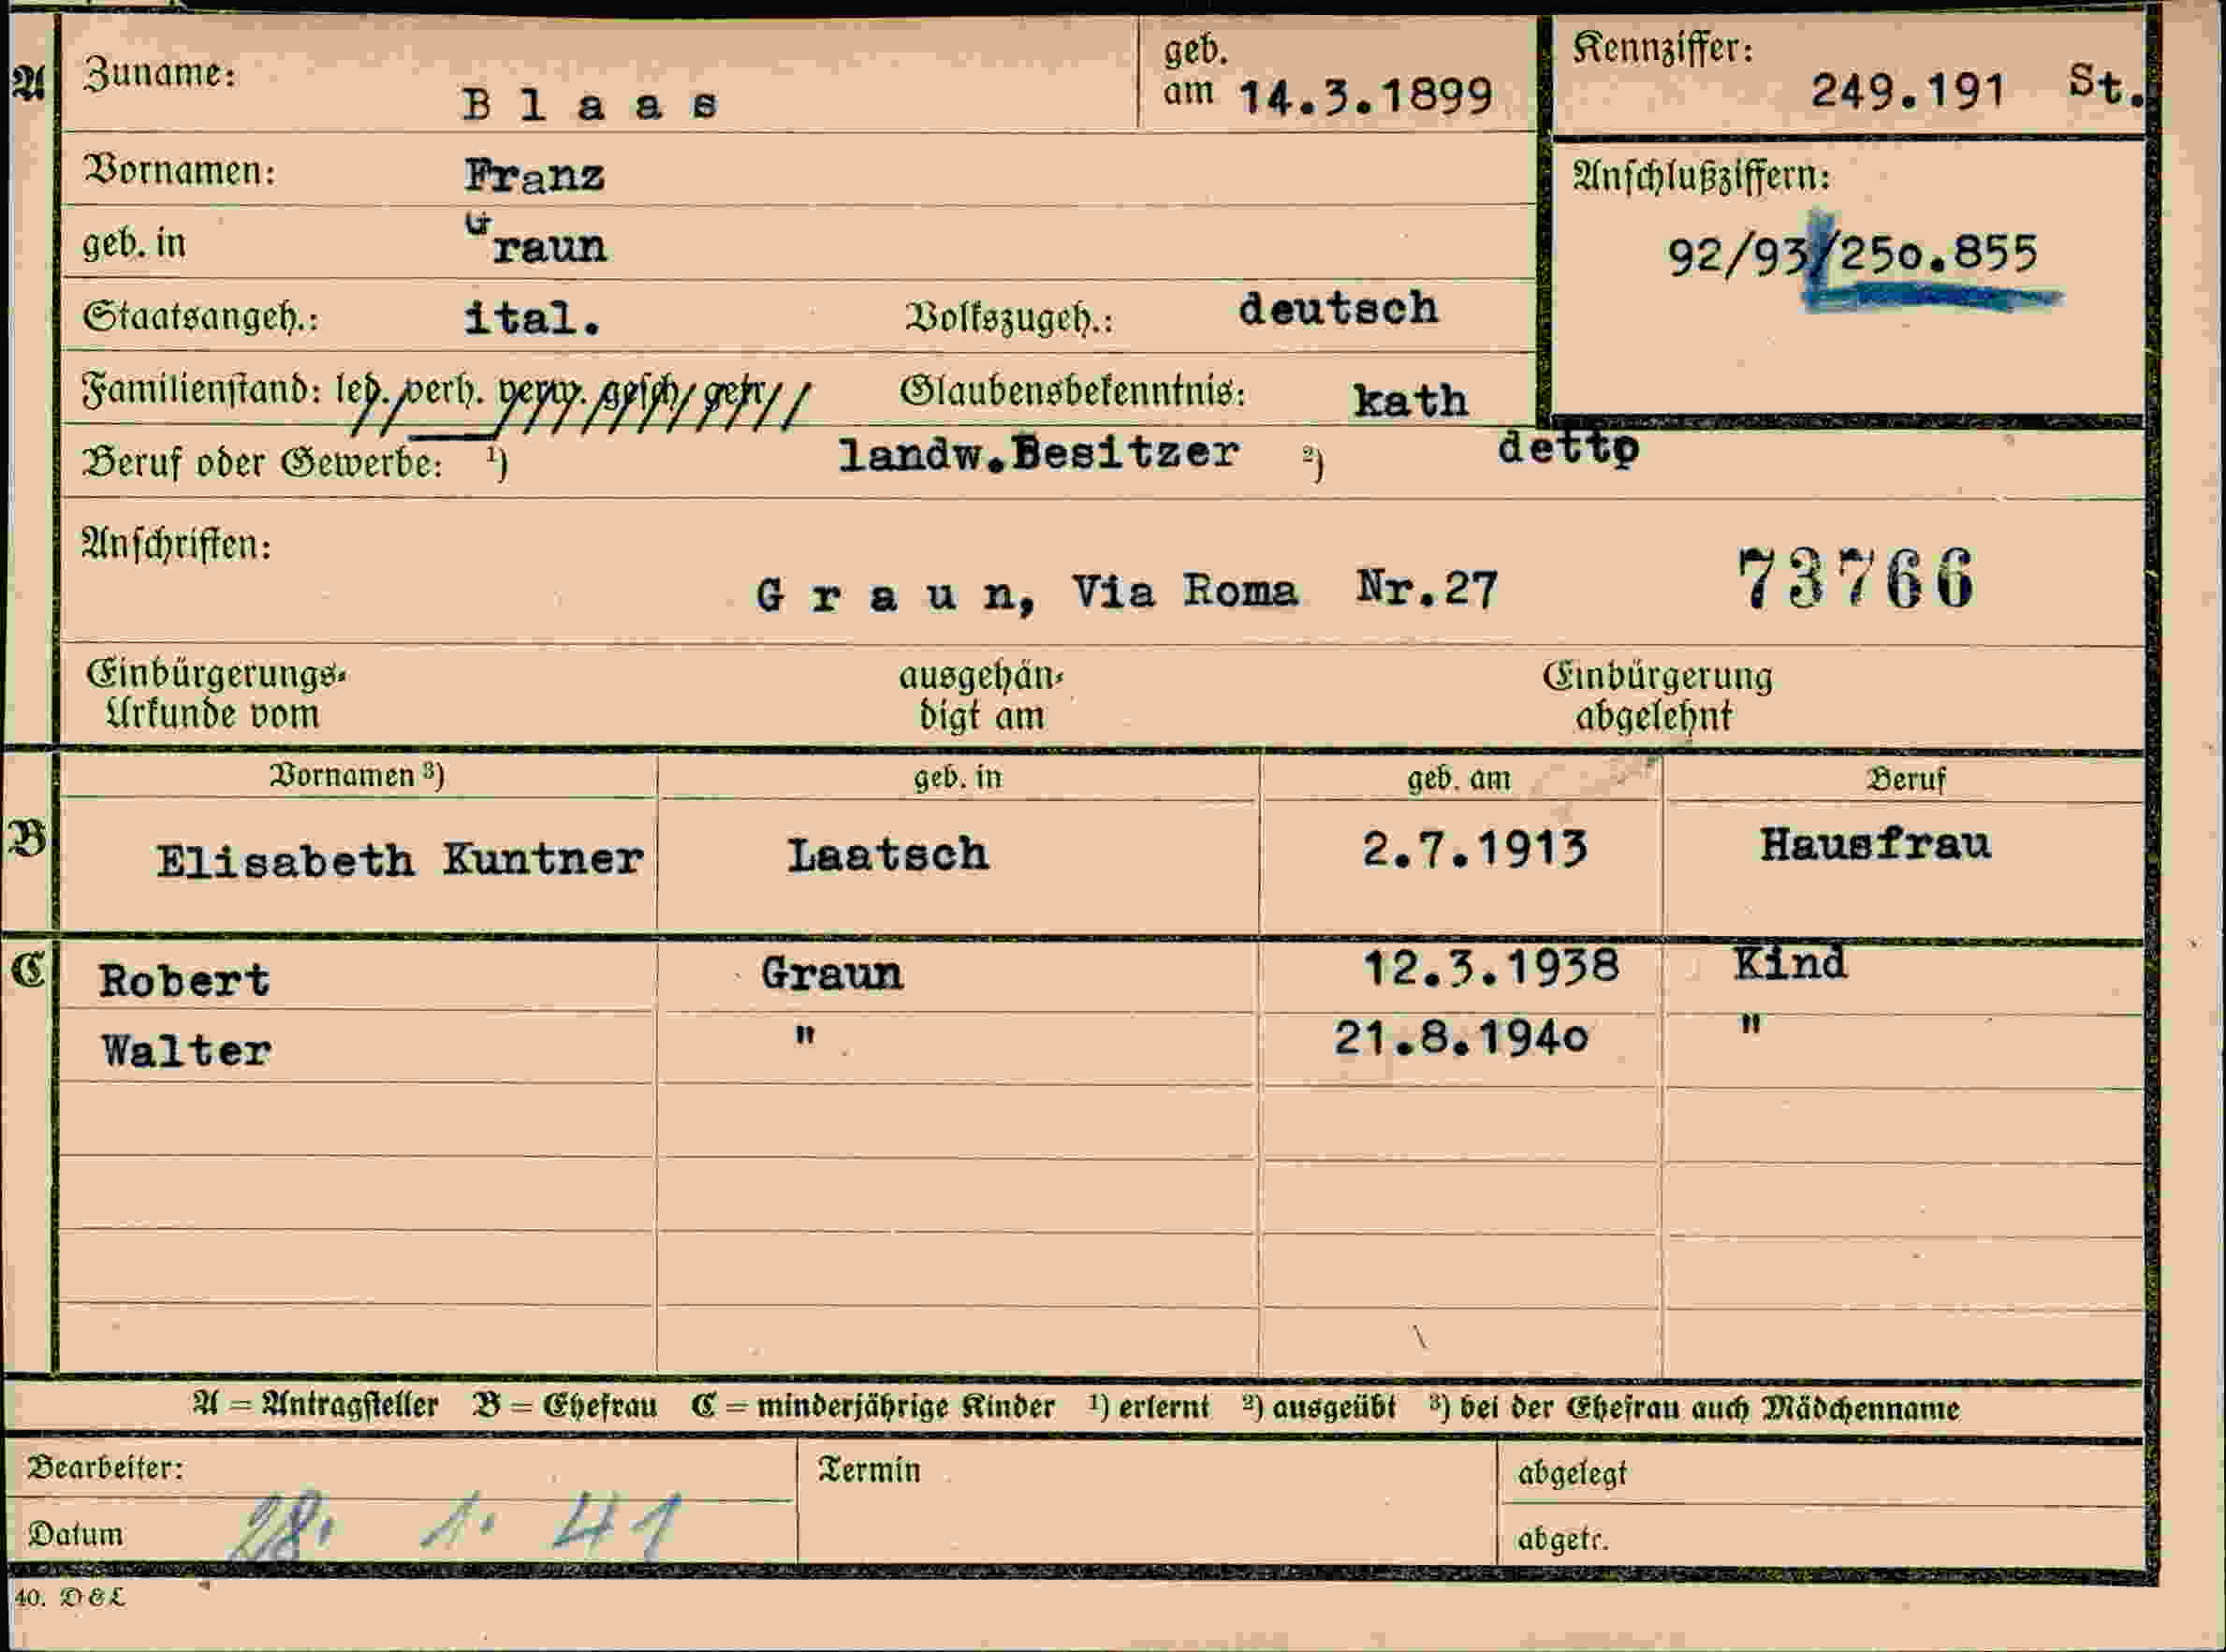 A Zuname: Blaas geb. am 14.3.1899 Kennziffer: 249.191 St.
Vornamen: Franz Anschlußziffern:
geb. in Graun 92/93/250.855
Staatsangeh.: ital. Volkszugeh.: deutsch
Familienstand: led. verh. verw. gesch. getr. Glaubensbekenntnis: kath
Beruf oder Gewerbe: ¹) landw.Besitzer ²) detto
Anschriften:
Graun, Via Roma Nr.27 73766
Einbürgerungs- ausgehän- Einbürgerung
Urkunde vom digt am abgelehnt
Vornamen ³) geb. in geb. am Beruf
B Elisabeth Kuntner Laatsch 2.7.1913 Hausfrau
C Robert Graun 12.3.1938 Kind
Walter " 21.8.1940 "
A = Antragsteller B = Ehefrau C = minderjährige Kinder ¹) erlernt ²) ausgeübt ³) bei der Ehefrau auch Mädchenname
Bearbeiter: Termin abgelegt
Datum 28. 1. 41 abgetr.
40. D&L